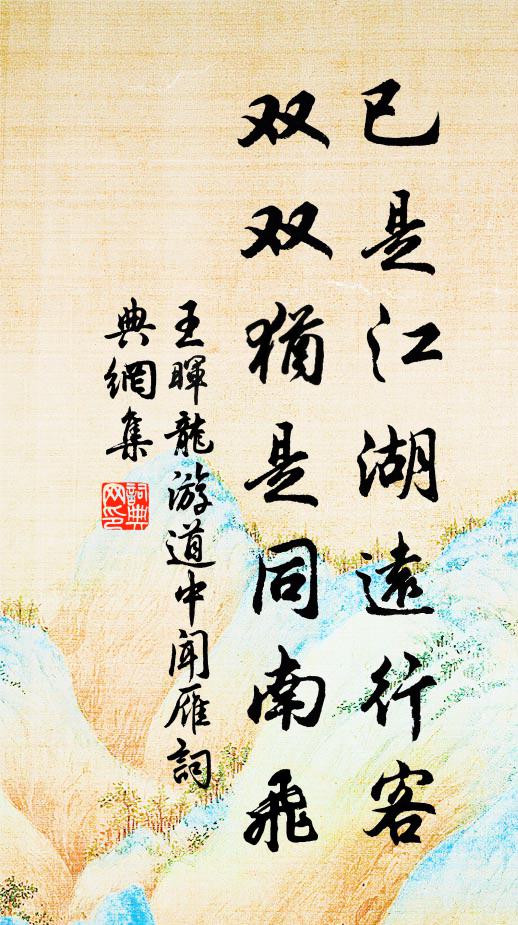 已是江湖遠行客
双双猶是同南飛
王暉龍游道中聞雁詞
典網集
詞典
网印